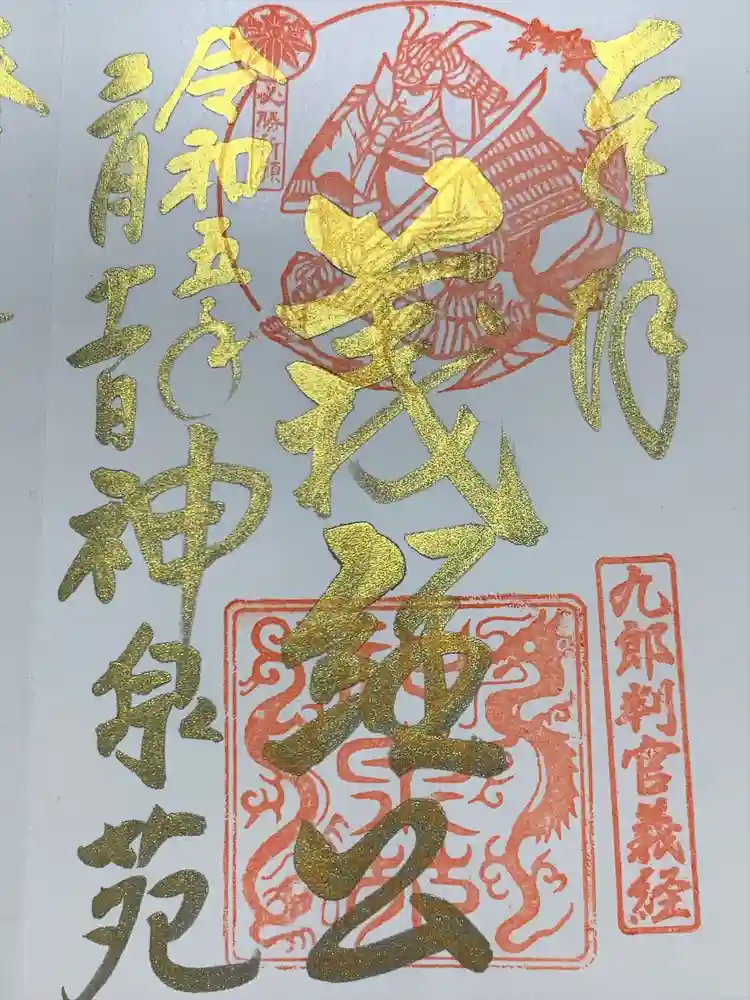 奉拝
九郎判官義経
義経公
必勝祈願
令和五年
神泉苑